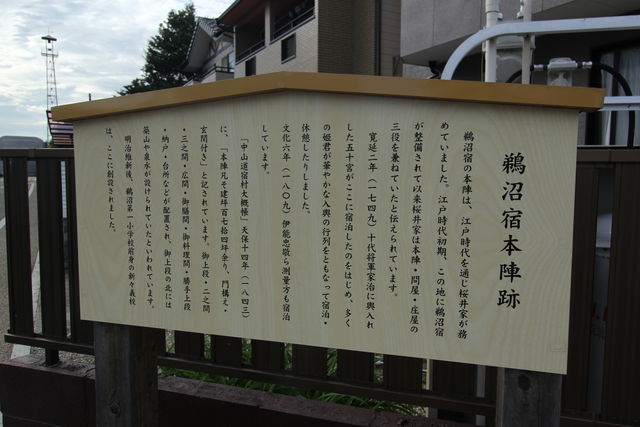 鵜沼宿本陣跡
鵜沼宿の本陣は、江戸時代を通じ桜井家が務
めていました。江戸時代初期、この地に鵜沼宿
が整備されて以来桜井家は本陣・問屋・庄屋の
三役を兼ねていたと伝えられています。
寛延二年(一七四九)十代将軍家治に輿入れ
した五十宮がここに宿泊したのをはじめ、多く
の姫君が華やかな入輿の行列をともなって宿泊・
休憩したりしました。
文化六年(一八〇九)伊能忠敬ら測量方も宿泊
しています。
「中山道宿村大概帳」天保十四年(一八四三)
に、「本陣凡そ建坪百七拾四坪余り、門構え・
玄関付き」と記されています。御上段・二之間
・三之間・広間・御膳間・御料理間・勝手上段
・納戸・台所などが配置され、御上段の北には
築山や泉水が設けられていたといわれています。
明治維新後、鵜沼第一小学校前身の新々義校
は、ここに創設されました。